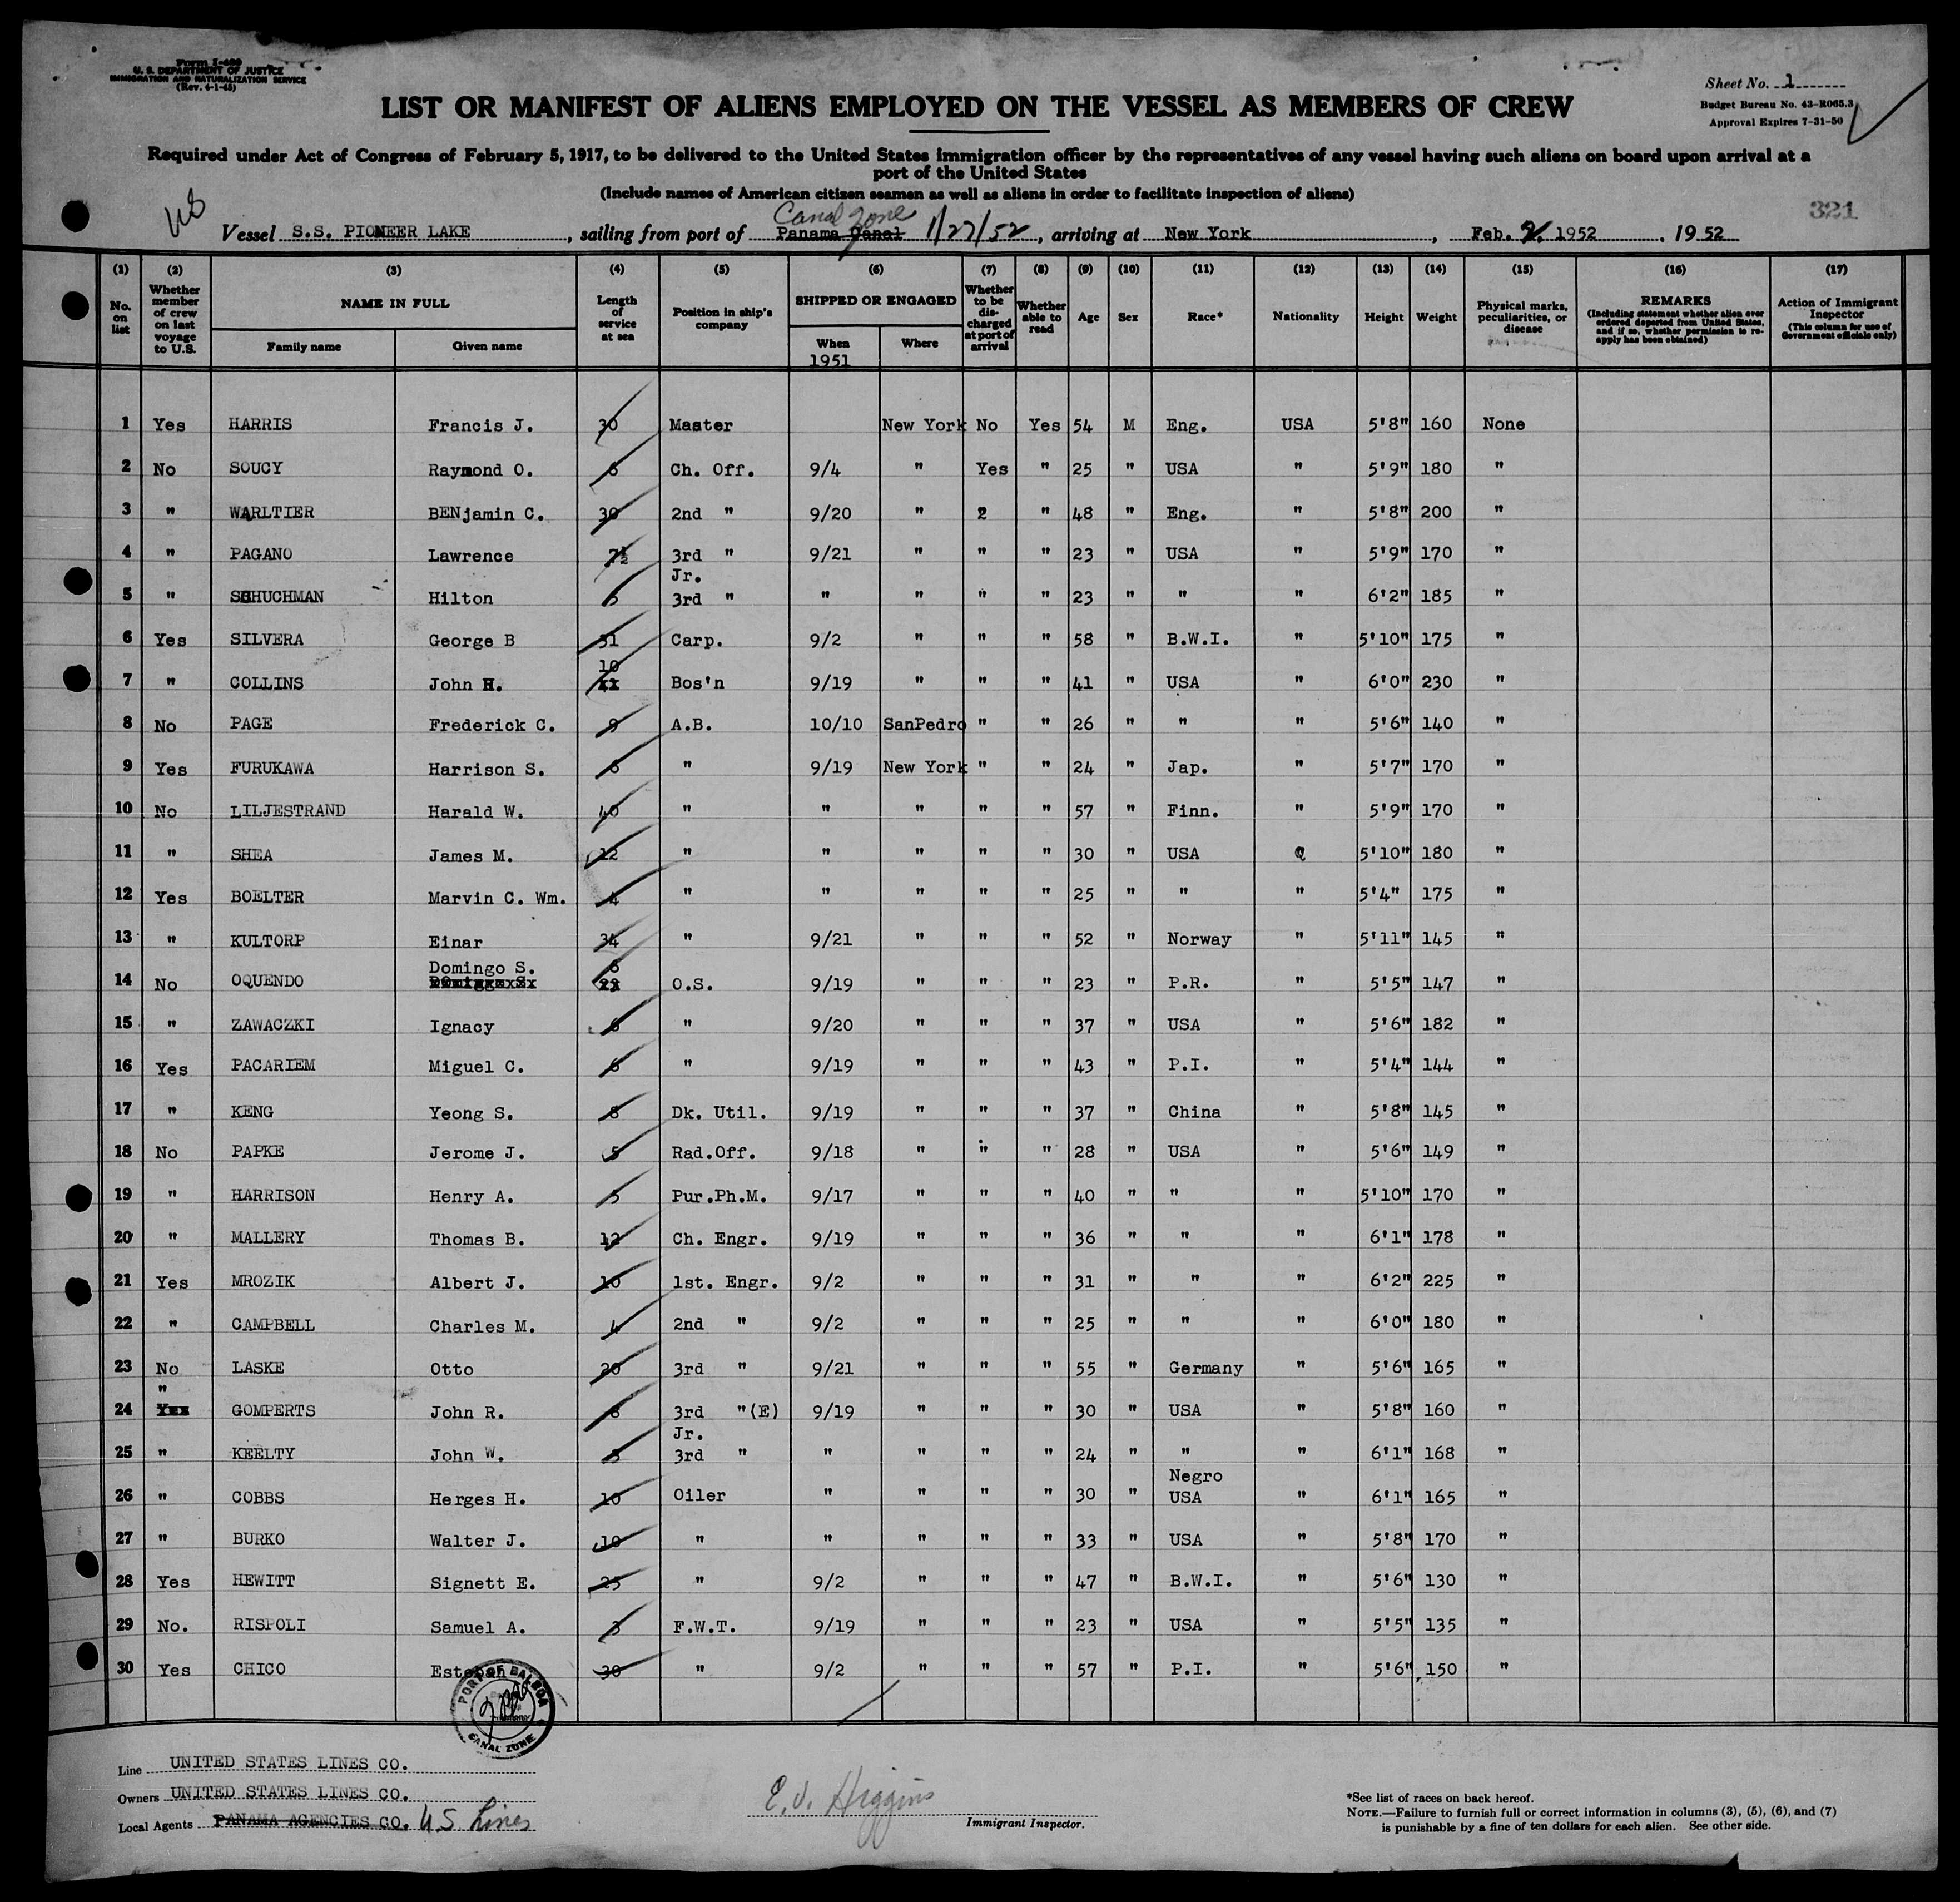 Form I-480
U. S. DEPARTMENT OF JUSTICE
IMMIGRATION AND NATURALIZATION SERVICE
(Rev. 4-1-45)
Sheet No. 1
Budget Bureau No. 43-R065.3
Approval Expires 7-31-50
LIST OR MANIFEST OF ALIENS EMPLOYED ON THE VESSEL AS MEMBERS OF CREW
Required under Act of Congress of February 5, 1917, to be delivered to the United States immigration officer by the representatives of any vessel having such aliens on board upon arrival at a
port of the United States
(Include names of American citizen seamen as well as aliens in order to facilitate inspection of aliens)
321
Canal Zone
Vessel S.S. PIONEER LAKE, sailing from port of Panama Canal 1/27/52, arriving at New York, Feb. 2, 1952, 1952
(1) (2) (3) (4) (5) (6) (7) (8) (9) (10) (11) (12) (13) (14) (15) (16) (17)
No. on list Whether member of crew on last voyage to U.S. NAME IN FULL Family name Given name Length of service at sea Position in ship's company SHIPPED OR ENGAGED When 1951 Where Whether to be discharged at port of arrival Whether able to read Age Sex Race* Nationality Height Weight Physical marks, peculiarities, or disease REMARKS (Including statement whether alien ever ordered deported from United States, and if so, whether permission to reapply has been obtained) Action of Immigrant Inspector (This column for use of Government officials only)
1 Yes HARRIS Francis J. 30 Master New York No Yes 54 M Eng. USA 5'8" 160 None
2 No SOUCY Raymond O. 6 Ch. Off. 9/4 " Yes " 25 " USA " 5'9" 180 "
3 " WARLTIER BENjamin C. 30 2nd " 9/20 " 2 " 48 " Eng. " 5'8" 200 "
4 " PAGANO Lawrence 7½ 3rd " 9/21 " " " 23 " USA " 5'9" 170 "
Jr.
5 " SCHUCHMAN Hilton 5 3rd " " " " " 23 " " " 6'2" 185 "
6 Yes SILVERA George B 31 Carp. 9/2 " " " 58 " B.W.I. " 5'10" 175 "
10
7 " COLLINS John H. xx Bos'n 9/19 " " " 41 " USA " 6'0" 230 "
8 No PAGE Frederick C. 9 A.B. 10/10 SanPedro " " 26 " " " 5'6" 140 "
9 Yes FURUKAWA Harrison S. 6 " 9/19 New York " " 24 " Jap. " 5'7" 170 "
10 No LILJESTRAND Harald W. 40 " " " " " 57 " Finn. " 5'9" 170 "
11 " SHEA James M. 12 " " " " " 30 " USA 5'10" 180 "
12 Yes BOELTER Marvin C. Wm. 4 " " " " " 25 " " " 5'4" 175 "
13 " KULTORP Einar 34 " 9/21 " " " 52 " Norway " 5'11" 145 "
Domingo S. 6
14 No OQUENDO O.S. 9/19 " " " 23 " P.R. " 5'5" 147 "
15 " ZAWACZKI Ignacy 6 " 9/20 " " " 37 " USA " 5'6" 182 "
16 Yes PACARIEM Miguel C. 6 " 9/19 " " " 43 " P.I. " 5'4" 144 "
17 " KENG Yeong S. 8 Dk. Util. 9/19 " " " 37 " China " 5'8" 145 "
18 No PAPKE Jerome J. 5 Rad.Off. 9/18 " " " 28 " USA " 5'6" 149 "
19 " HARRISON Henry A. 5 Pur.Ph.M. 9/17 " " " 40 " " " 5'10" 170 "
20 " MALLERY Thomas B. 12 Ch. Engr. 9/19 " " " 36 " " " 6'1" 178 "
21 Yes MROZIK Albert J. 10 1st. Engr. 9/2 " " " 31 " " " 6'2" 225 "
22 " CAMPBELL Charles M. 4 2nd " 9/2 " " " 25 " " " 6'0" 180 "
23 No LASKE Otto 20 3rd " 9/21 " " " 55 " Germany " 5'6" 165 "
"
24 Yxx GOMPERTS John R. 8 3rd "(E) 9/19 " " " 30 " USA " 5'8" 160 "
Jr.
25 " KEELTY John W. 3rd " " " " " 24 " " " 6'1" 168 "
Negro
26 " COBBS Herges H. 10 Oiler " " " " 30 " USA " 6'1" 165 "
27 " BURKO Walter J. 10 " " " " " 33 " USA " 5'8" 170 "
28 Yes HEWITT Signett E. 25 " 9/2 " " " 47 " B.W.I. " 5'6" 130 "
29 No. RISPOLI Samuel A. 3 F.W.T. 9/19 " " " 23 " USA " 5'5" 135 "
30 Yes CHICO Esteban 30 " 9/2 " " " 57 " P.I. " 5'6" 150 "
PORT OF BALBOA
CANAL ZONE
Line UNITED STATES LINES CO.
Owners UNITED STATES LINES CO.
Local Agents PANAMA AGENCIES CO. US Lines
E. J. Higgins
Immigrant Inspector.
*See list of races on back hereof.
NOTE.—Failure to furnish full or correct information in columns (3), (5), (6), and (7)
is punishable by a fine of ten dollars for each alien. See other side.